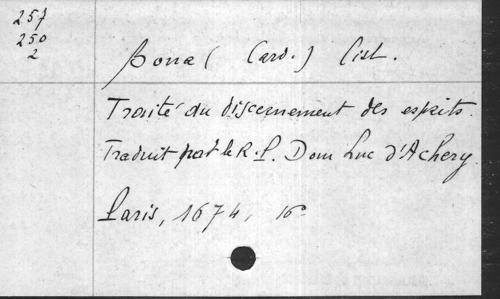 257
250
2
Bona ( Card. ) Cist.
Traité du discernement des esprits.
Traduit par le R. P. Dom Luc d'Achery
Paris, 1674, 16°